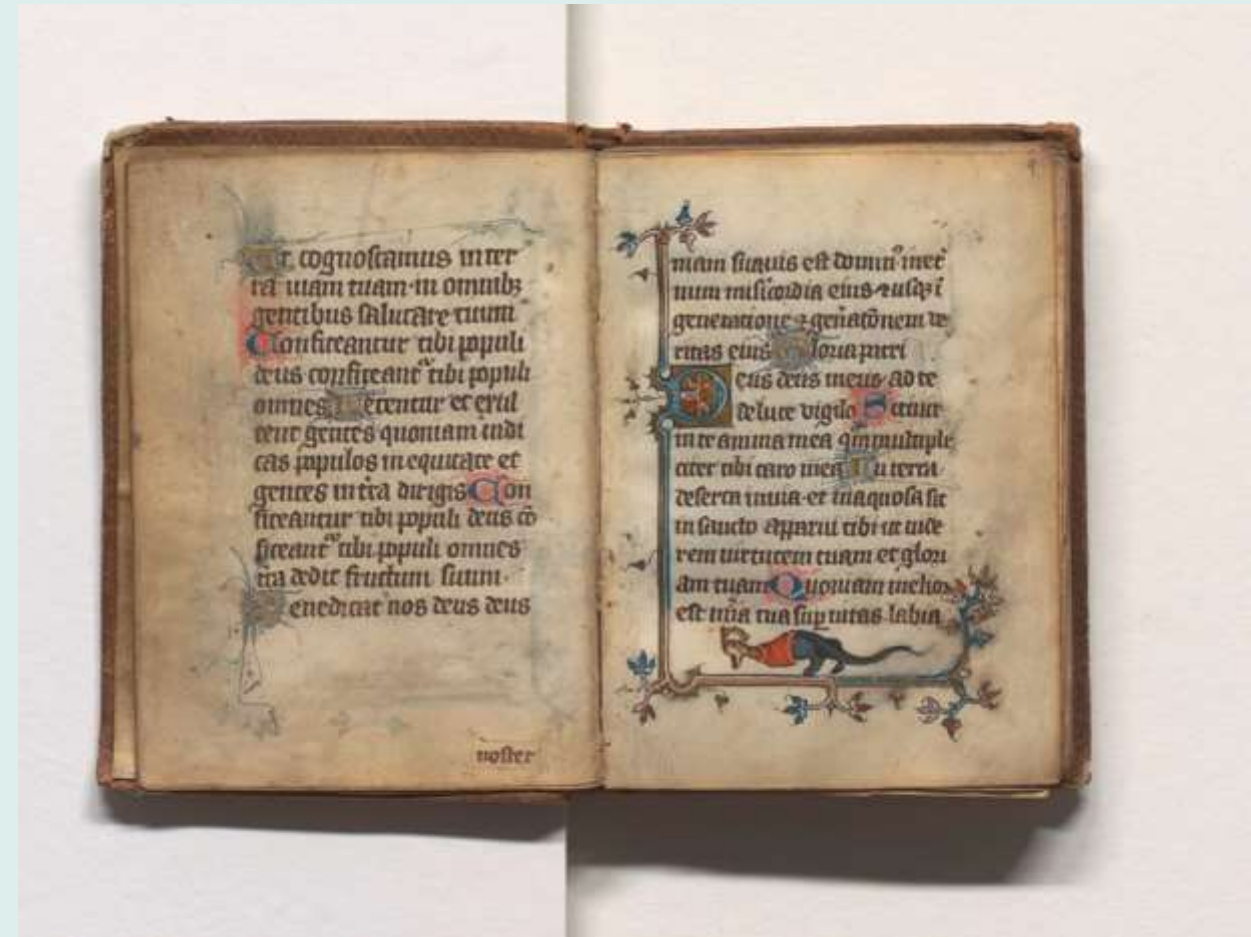 Ut cognoscamus in ter
ra uiam tuam in omnibꝫ
gentibus salutare tuum
Confiteantur tibi populi
deus confiteant᷑ tibi populi
omnes Letentur et exul
tent gentes quoniam iudi
cas populos in equitate et
gentes in tr̃a dirigis Con
fiteantur tibi populi deus cõ
fiteant᷑ tibi populi omnes
tr̃a dedit fructum suum
Benedicat nos deus deus
noster
niam suauis est domin᷒ in et̃
num mis̃icordia eius ⁊ usqꝫ ĩ
generatione ⁊ gen̾atõnem ue
ritas eius Gloria patri
Deus deus meus ad te
de luce vigilo Sitiuit
in te anima mea qͣm multiple
citer tibi caro mea In terra
deserta inuia et inaquosa sic
in sancto apparui tibi ut uide
rem uirtutem tuam et glori
am tuam Quoniam melior
est mĩa tua sup uitas labia